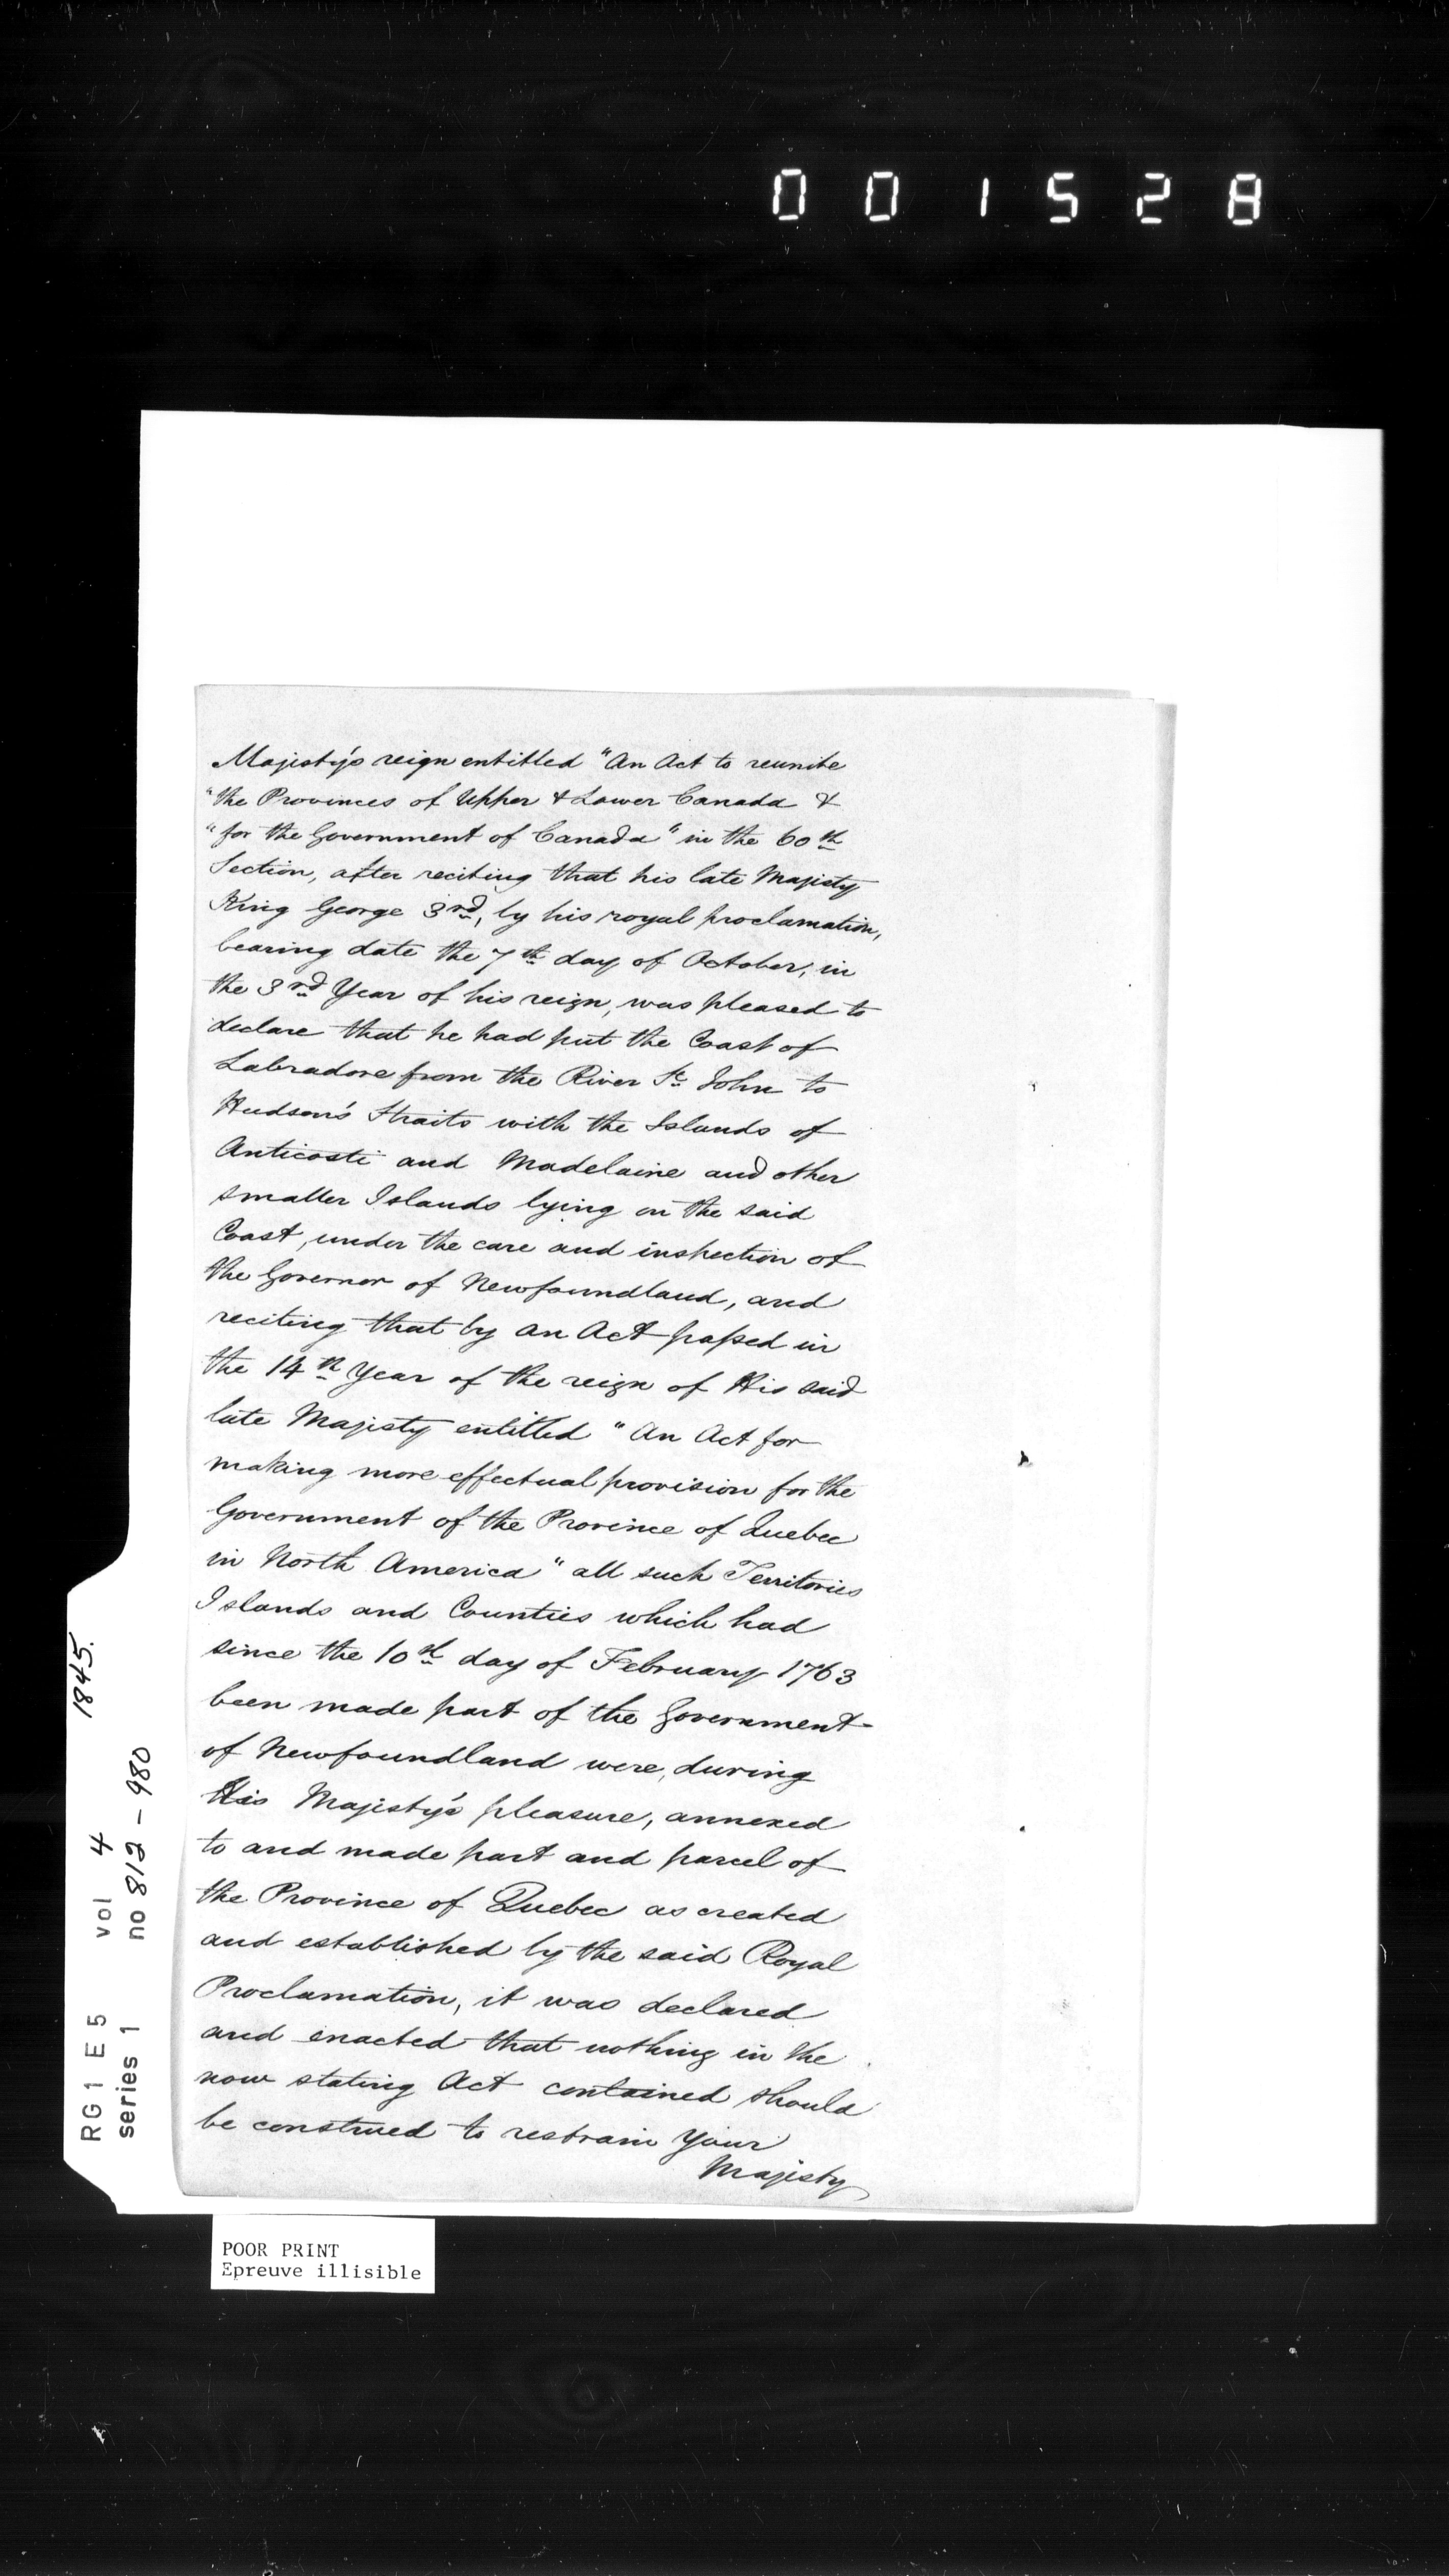 001528
Majesty's reign entitled "An Act to reunite
"the Provinces of Upper & Lower Canada &
"for the Government of Canada" in the 60th
Section, after reciting that his late Majesty
King George 3rd, by his royal proclamation,
bearing date the 7th day of October, in
the 3rd Year of his reign, was pleased to
declare that he had put the Coast of
Labradore from the River St. John to
Hudson's Straits with the Islands of
Anticosti and Madelaine and other
smaller Islands lying on the said
Coast, under the care and inspection of
the Governor of Newfoundland, and
reciting that by an Act passed in
the 14th Year of the reign of His said
late Majesty entitled "An Act for
making more effectual provision for the
Government of the Province of Quebec
in North America" all such Territories
Islands and Counties which had
since the 10th day of February 1763
been made part of the Government
of Newfoundland were, during
His Majesty's pleasure, annexed
to and made part and parcel of
the Province of Quebec as created
and established by the said Royal
Proclamation, it was declared
and enacted that nothing in the
now stating Act contained should
be construed to restrain Your
Majesty
RG 1 E 5 vol 4 1845.
series 1 no 812 - 980
POOR PRINT
Epreuve illisible